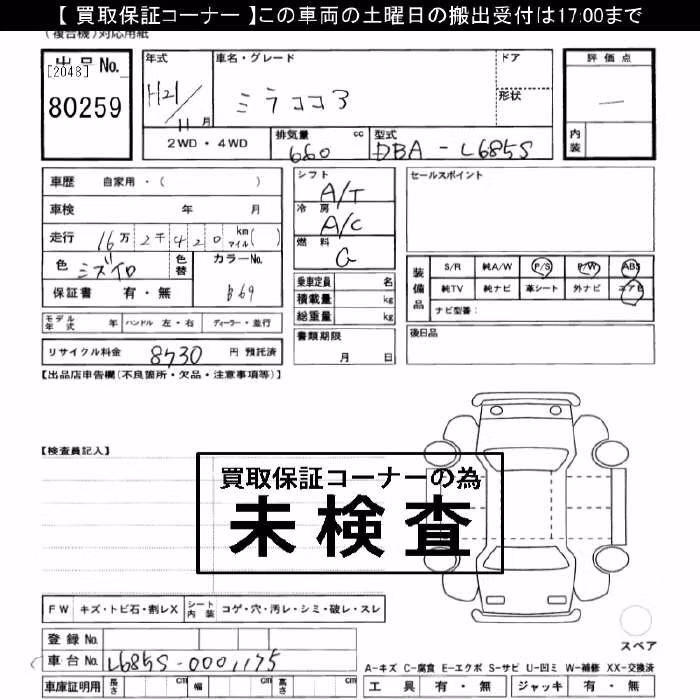 【 買取保証コーナー 】この車両の土曜日の搬出受付は17:00まで
(複合機)対応用紙
出品No. 年式 車名・グレード ドア 評価点
[2048]
80259 H21/11月 ミラココア 形状 —
2WD・4WD 排気量 660 cc 型式 DBA-L685S 内装
車歴 自家用・( ) シフト A/T セールスポイント
車検 年 月 冷房 A/C
走行 16万2千420 km マイル( ) 燃料 G
色 ミズイロ 色替 カラーNo. B69
装備品 S/R 純A/W P/S P/W ABS
純TV 純ナビ 革シート 外ナビ エアB
ナビ型番:
保証書 有・無
乗車定員 名
積載量 kg
総重量 kg
モデル年式 年 ハンドル 左・右 ディーラー・並行
書類期限 月 日
後日品
リサイクル料金 8730 円 預託済
【出品店申告欄(不良箇所・欠品・注意事項等)】
【検査員記入】
買取保証コーナーの為
未検査
FW キズ・トビ石・割レX シート内装 コゲ・穴・汚レ・シミ・破レ・スレ
登録No.
スペア
車台No. L685S-0001175
A-キズ C-腐食 E-エクボ S-サビ U-凹ミ W-補修 XX-交換済
車庫証明用 長さ cm 幅 cm 高さ cm 工具 有・無 ジャッキ 有・無